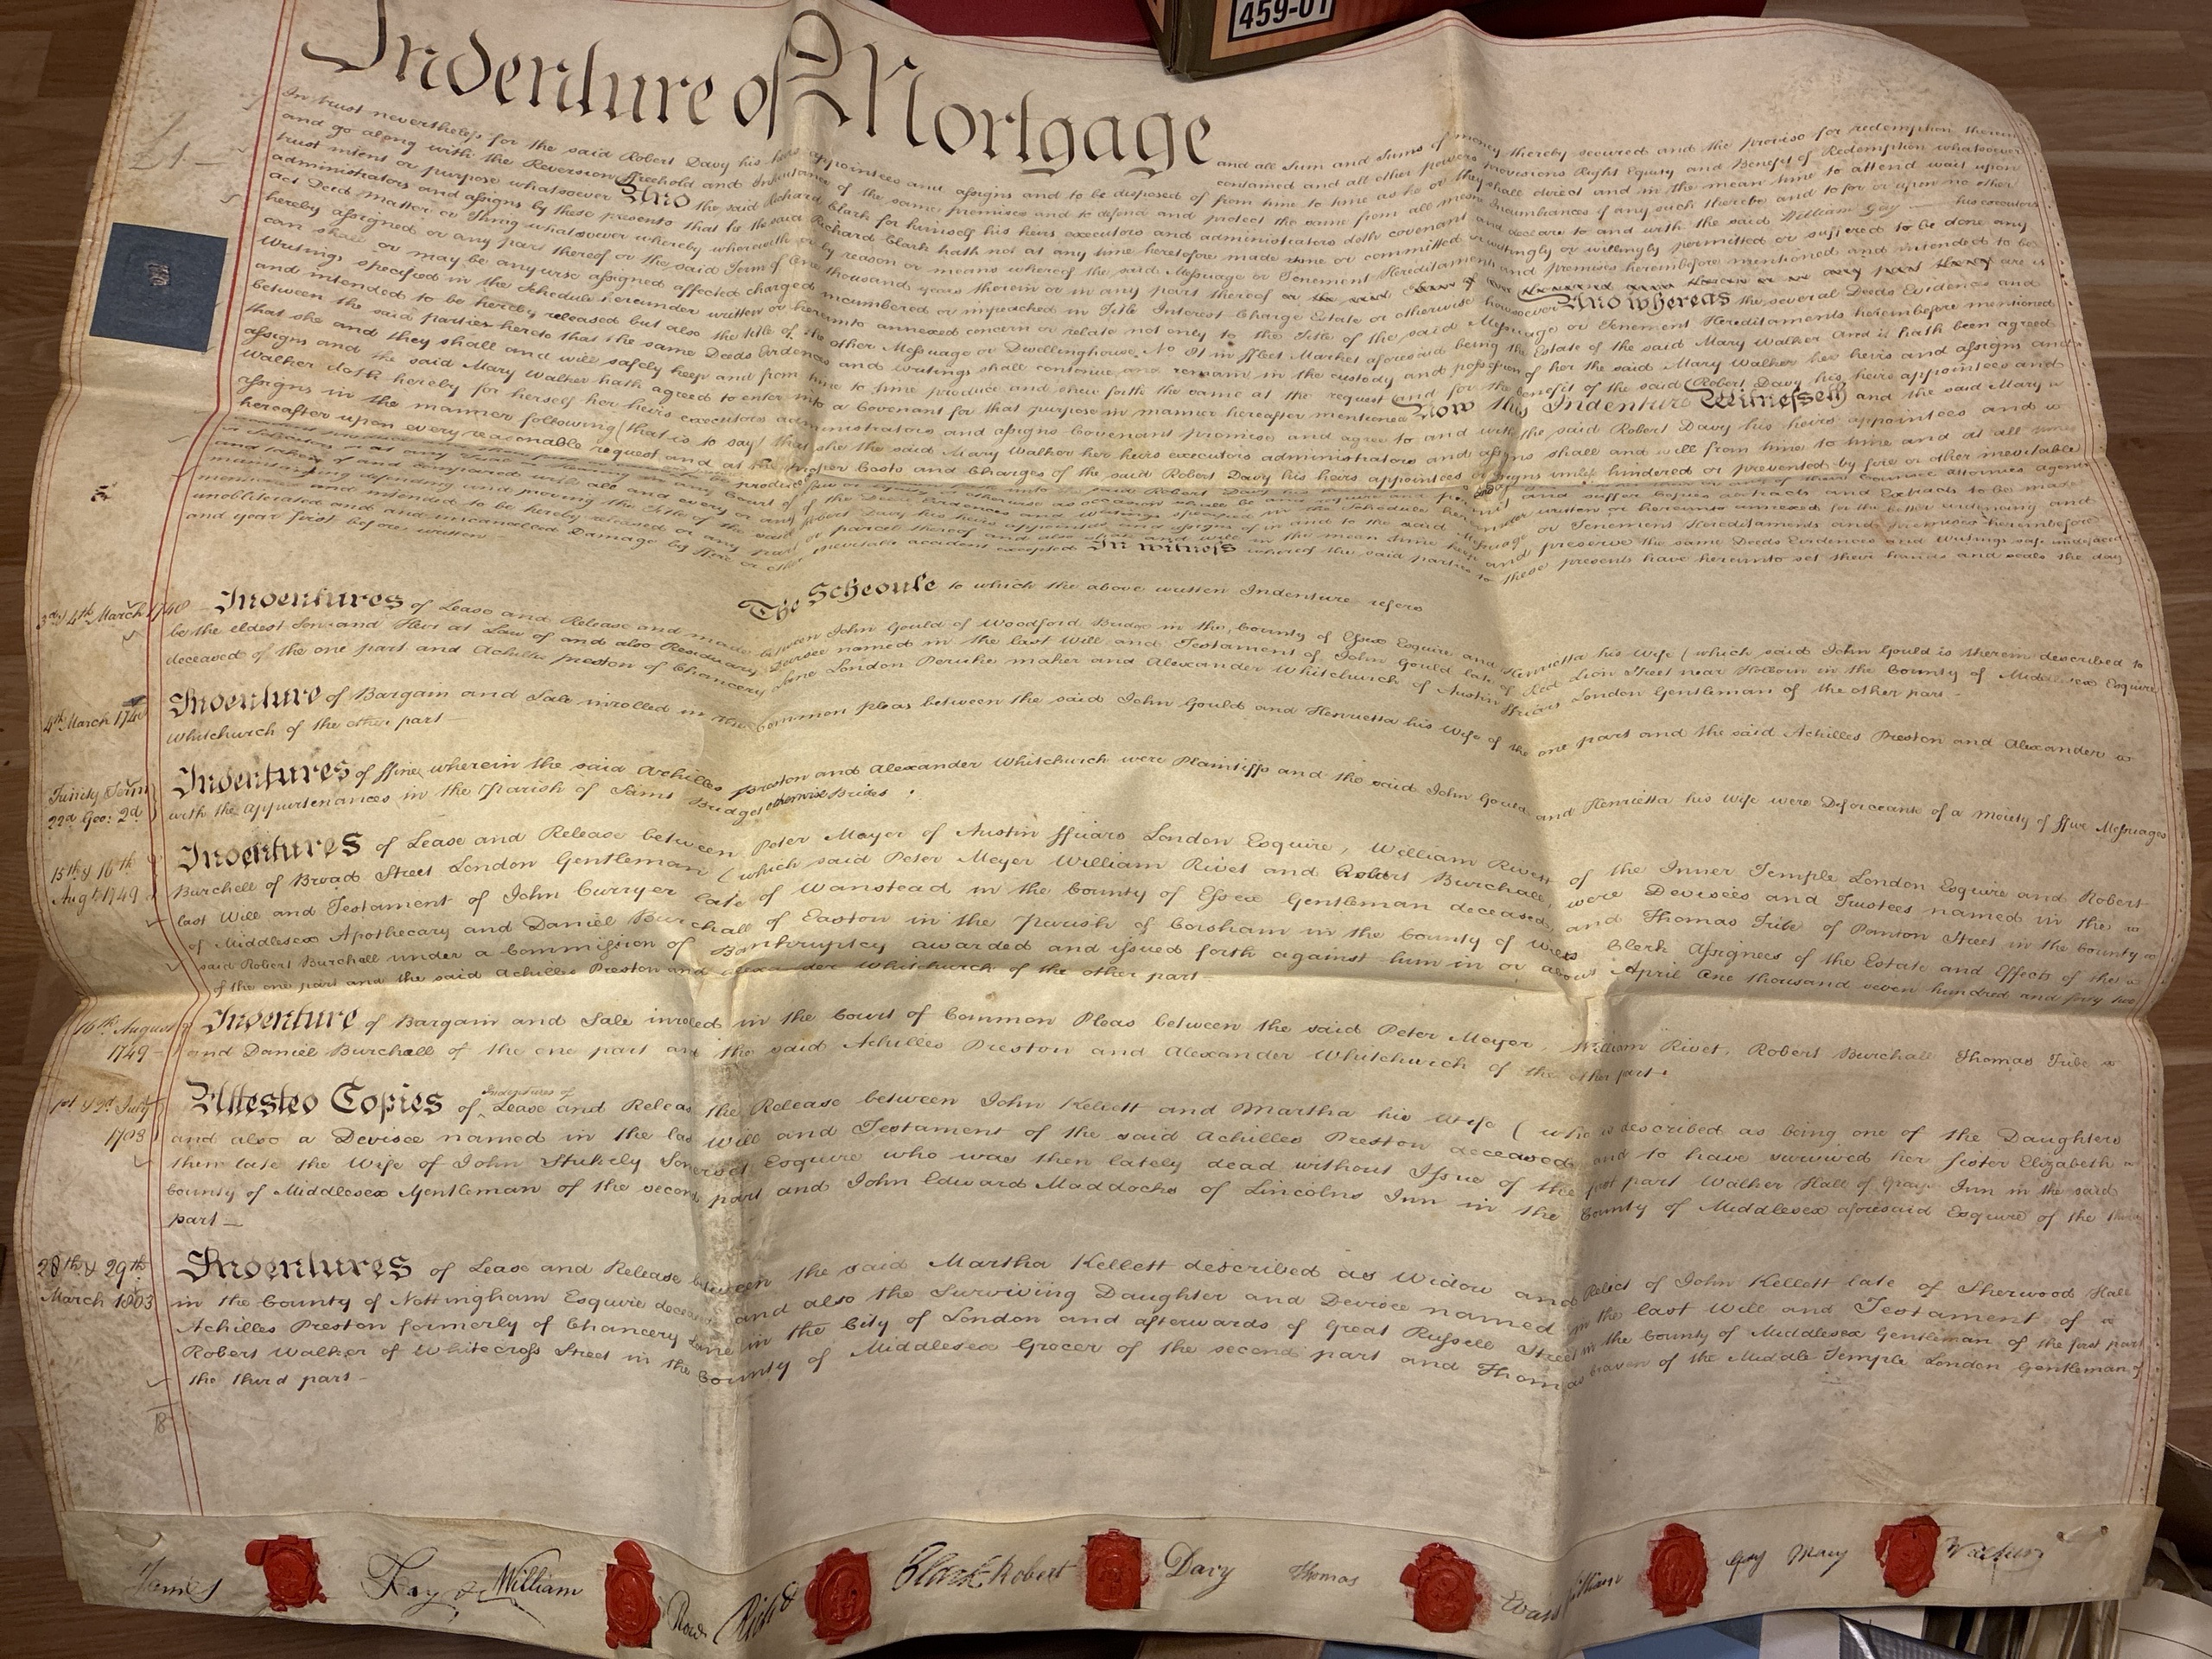 459-01
Indenture of Mortgage
In trust nevertheless for the said Robert Davy his heirs appointees and assigns and to be disposed of from time to time as he or they shall direct and in the mean time to attend wait upon
and go along with the Reversion Freehold and Inheritance of the same premises and to defend and protect the same from all mesne Incumbrances if any such there be and to for or upon no other
trust intent or purpose whatsoever And the said Richard Clark for himself his heirs executors and administrators doth covenant and declare to and with the said William Gay his executors
administrators and assigns by these presents that he the said Richard Clark hath not at any time heretofore made done or committed or wittingly or willingly permitted or suffered to be done any
Act Deed Matter or Thing whatsoever whereby wherewith or by reason or means whereof the said Messuage or Tenement Hereditaments and premises hereinbefore mentioned and intended to be
hereby assigned or any part thereof or the said Term of One thousand years therein or in any part thereof are is
can shall or may be anywise assigned affected charged incumbered or impeached in Title Interest Charge Estate or otherwise howsoever And whereas the several Deeds Evidences and
Writings specified in the Schedule hereunder written or hereunto annexed concern or relate not only to the Title of the said Messuage or Tenement Hereditaments hereinbefore mentioned
and intended to be hereby released but also the title of the other Messuage or Dwellinghouse No 81 in Fleet Market aforesaid being the Estate of the said Mary Walker And it hath been agreed
between the said parties hereto that the same Deeds Evidences and Writings shall continue and remain in the custody and possession of her the said Mary Walker her heirs and assigns and
that she and they shall and will safely keep and from time to time produce and shew forth the same at the request and for the benefit of the said Robert Davy his heirs appointees and
assigns and the said Mary Walker hath agreed to enter into a Covenant for that purpose in manner hereafter mentioned Now this Indenture Witnesseth and the said Mary
Walker doth hereby for herself her heirs executors administrators and assigns Covenant promise and agree to and with the said Robert Davy his heirs appointees and
assigns in the manner following (that is to say) that she the said Mary Walker her heirs executors administrators and assigns shall and will from time to time and at all times
hereafter upon every reasonable request and at the proper Costs and Charges of the said Robert Davy his heirs appointees or assigns unless hindered or prevented by fire or other inevitable
and taken of and compared with all and every or any of the Deeds Evidences and Writings specified in the Schedule hereunder written or hereunto annexed for the better evidencing and
maintaining defending and proving the Title of the said Robert Davy his heirs appointees and assigns of in and to the said Messuage or Tenement Hereditaments and Premises hereinbefore
mentioned and intended to be hereby released or any part or parcel thereof and also shall and will in the mean time keep and preserve the same Deeds Evidences and Writings safe undefaced
unobliterated and uncancelled Damage by Fire or other inevitable accident excepted In witness whereof the said parties to these presents have hereunto set their hands and seals the day
and year first before written
The Schedule to which the above written Indenture refers
3rd & 4th March 1748
Indentures of Lease and Release and made between John Gould of Woodford Bridge in the County of Essex Esquire and Henrietta his Wife (which said John Gould is therein described to
be the eldest Son and Heir at Law of and also Residuary Devisee named in the last Will and Testament of John Gould late of Red Lion Street near Holborn in the County of Middlesex Esquire
deceased of the one part and Achilles Preston of Chancery Lane London Peruke maker and Alexander Whitchurch of Austin Ffriars London Gentleman of the other part
4th March 1748
Indenture of Bargain and Sale inrolled in the Common pleas between the said John Gould and Henrietta his Wife of the one part and the said Achilles Preston and Alexander
Whitchurch of the other part
Trinity Term
22d Geo: 2d
Indentures of ffine wherein the said Achilles Preston and Alexander Whitchurch were Plaintiffs and the said John Gould and Henrietta his Wife were Deforceants of a moiety of ffive Messuages
with the appurtenances in the Parish of Saint Bridget otherwise Brides
15th & 16th
Augt 1749
Indentures of Lease and Release between Peter Meyer of Austin ffriars London Esquire, William Rivet of the Inner Temple London Esquire and Robert
Burchell of Broad Street London Gentleman (which said Peter Meyer William Rivet and Robert Burchall were Devisees and Trustees named in the
last Will and Testament of John Curryer late of Wanstead in the County of Essex Gentleman deceased, and Thomas Tribe of Panton Street in the County
of Middlesex Apothecary and Daniel Burchall of Easton in the Parish of Corsham in the County of Wilts Clerk Assignees of the Estate and Effects of the
said Robert Burchall under a Commission of Bankruptcy awarded and issued forth against him in or about April One thousand seven hundred and forty two
of the one part and the said Achilles Preston and Alexander Whitchurch of the other part
16th August
1749
Indenture of Bargain and Sale inrolled in the Court of Common Pleas between the said Peter Meyer, William Rivet, Robert Burchall Thomas Tribe
and Daniel Burchall of the one part and the said Achilles Preston and Alexander Whitchurch of the other part
1st & 2d July
Attested Copies of Indentures of Lease and Release the Release between John Kellett and Martha his Wife (who is described as being one of the Daughters
and also a Devisee named in the last Will and Testament of the said Achilles Preston deceased and to have survived her Sister Elizabeth
then late the Wife of John Stukely Somerset Esquire who was then lately dead without Issue of the first part Walker Hall of Grays Inn in the said
County of Middlesex Gentleman of the second part and John Edward Maddocks of Lincolns Inn in the County of Middlesex aforesaid Esquire of the third
part
28th & 29th
March 1803
Indentures of Lease and Release between the said Martha Kellett described as Widow and Relict of John Kellett late of Sherwood Hall
in the County of Nottingham Esquire deceased and also the Surviving Daughter and Devisee named in the last Will and Testament of
Achilles Preston formerly of Chancery Lane in the City of London and afterwards of Great Russell Street in the County of Middlesex Gentleman of the first part
Robert Walker of Whitecross Street in the County of Middlesex Grocer of the second part and Thomas Craven of the Middle Temple London Gentleman of
the third part
James Kay William Rowe Richd Clark Robert Davy Thomas Evans William Gay Mary Walker